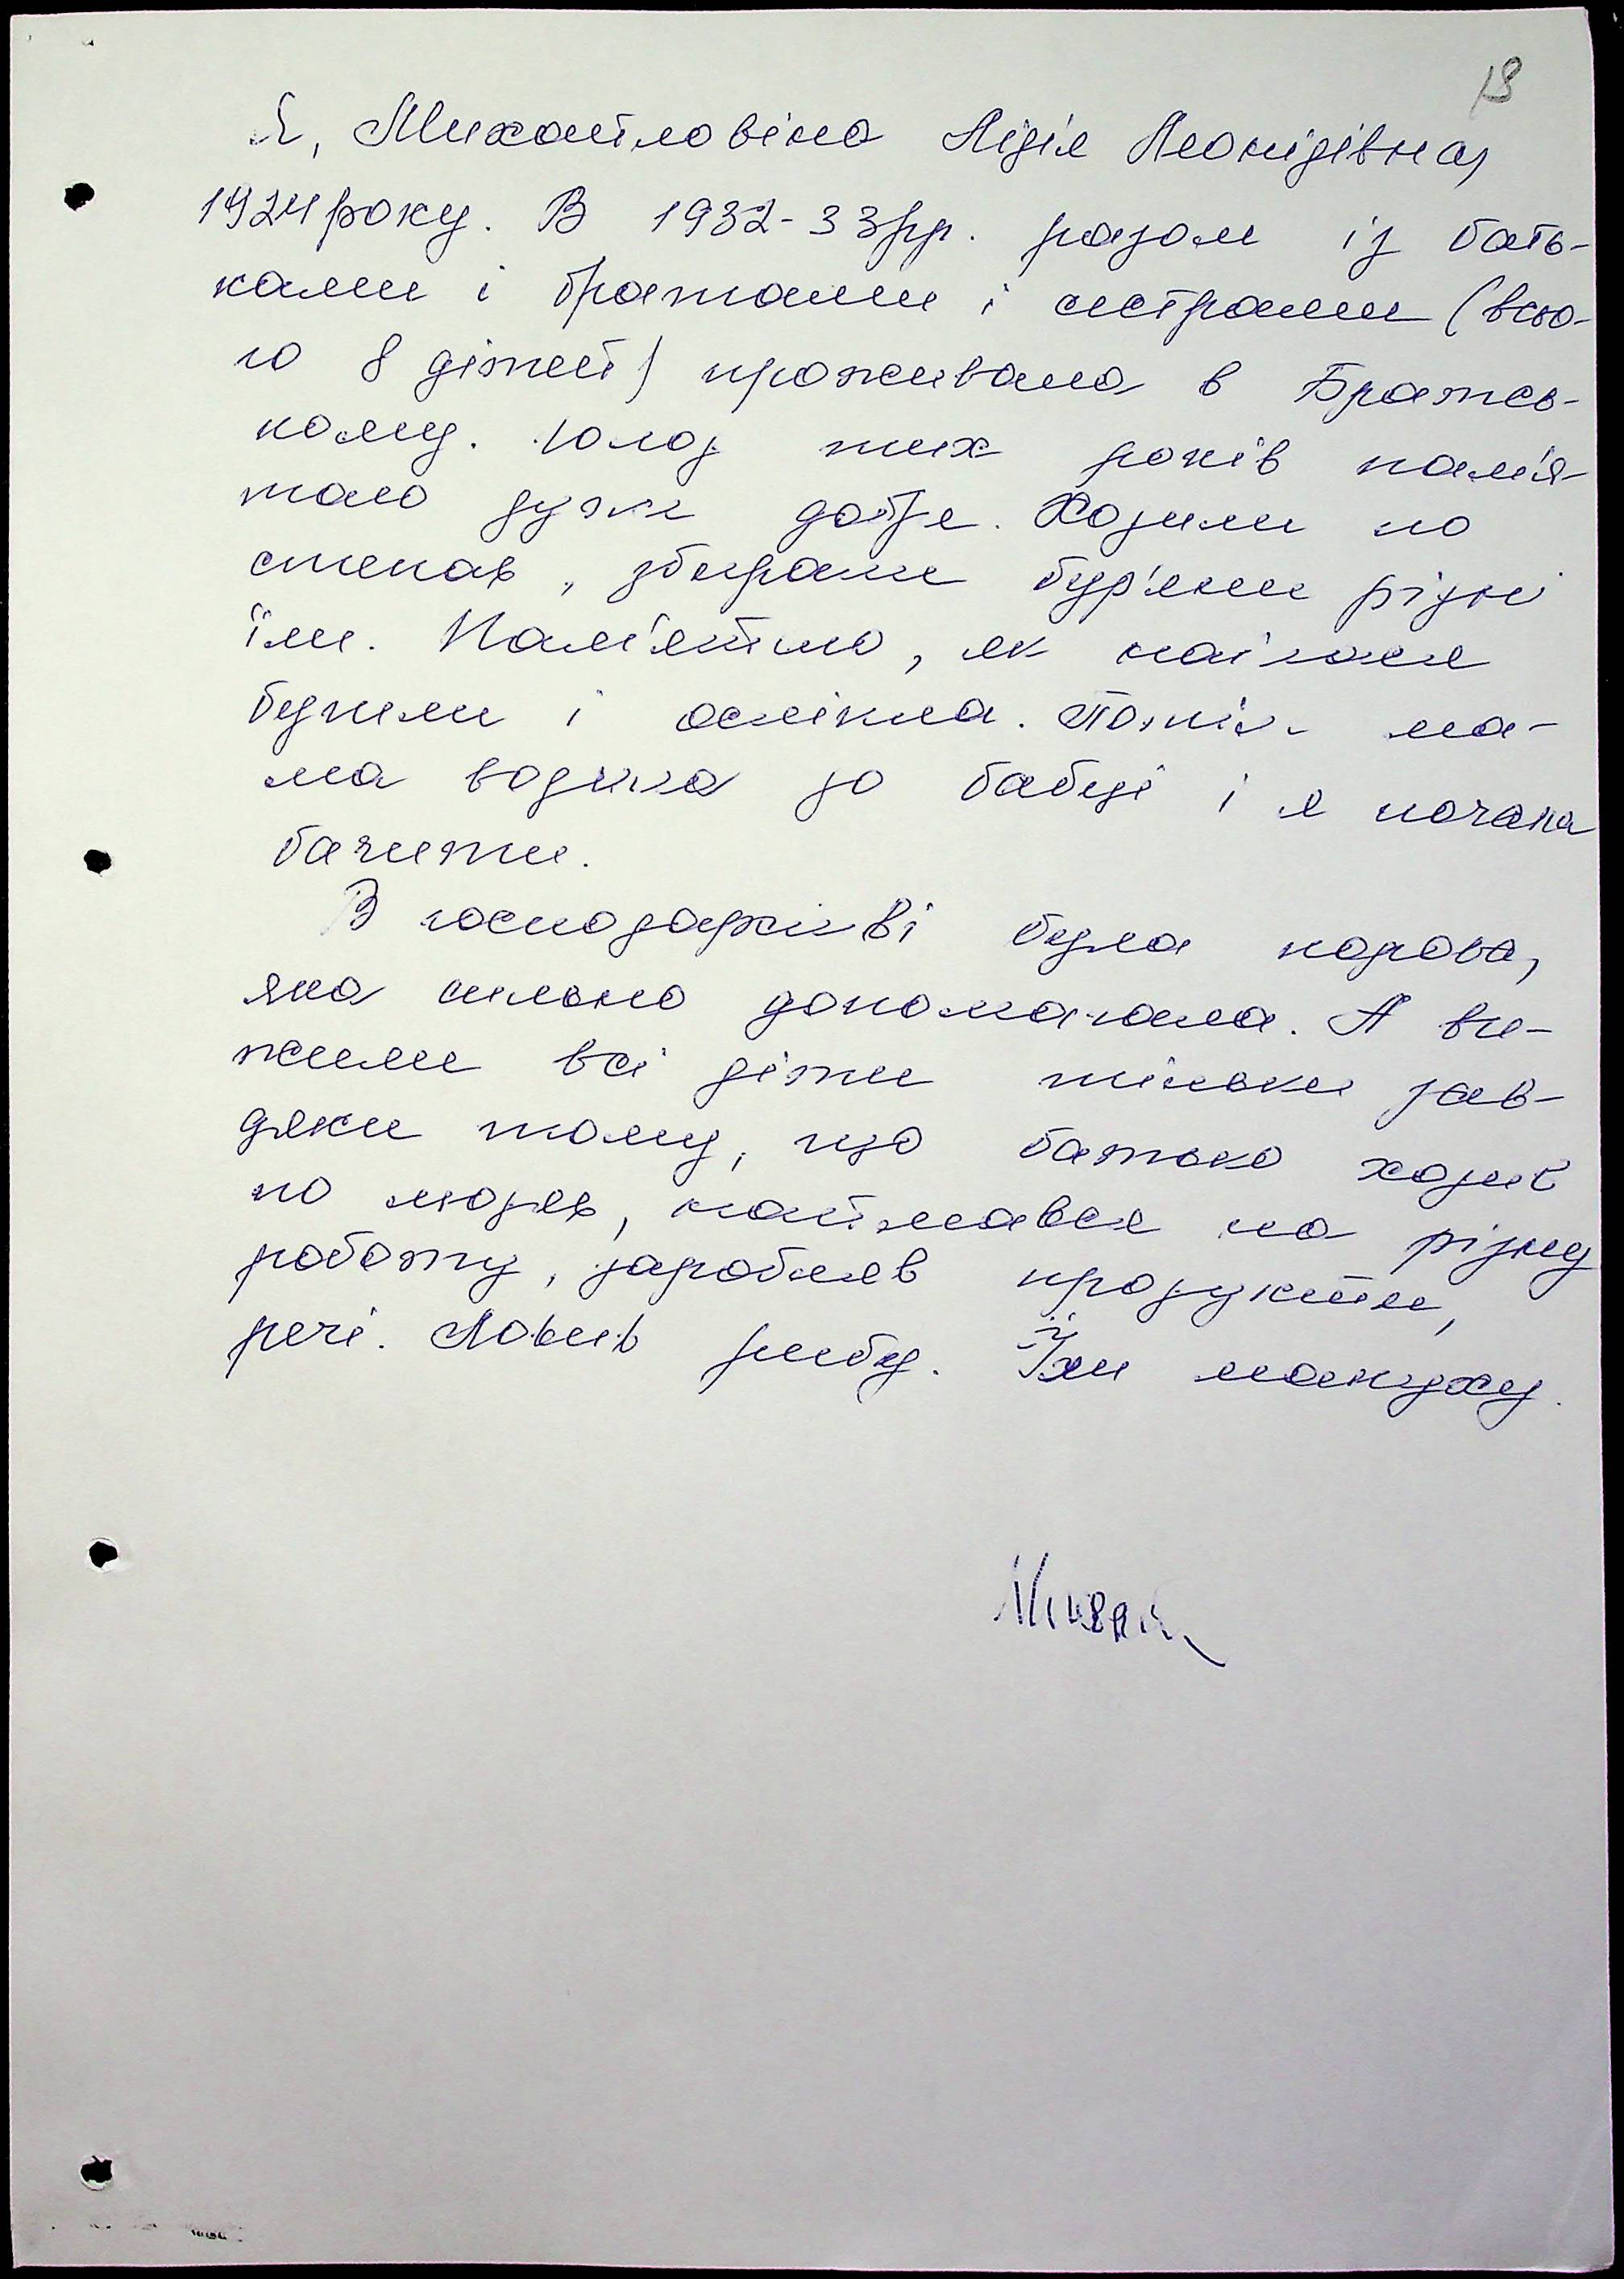 19
Я, Михайловіна Лідія Леонідівна,
1924 року. В 1932-33 рр. разом із бать-
ками і братами і сестрами (всьо-
го 8 дітей) проживала в Братсь-
кому. Голод тих років пам'я-
таю дуже добре. Ходили по
степах, збирали бур'яни різні
їли. Пам'ятаю, як наїлися
бузини і осліпла. Потім ма-
ма водила до бабці і я почала
бачити.
В господарстві була корова,
яка сильно допомагала. А ви-
жили всі діти тільки зав-
дяки тому, що батько ходив
по людях, наймався на різну
роботу, заробляв продукти,
речі. Ловив рибу. Їли макуху.